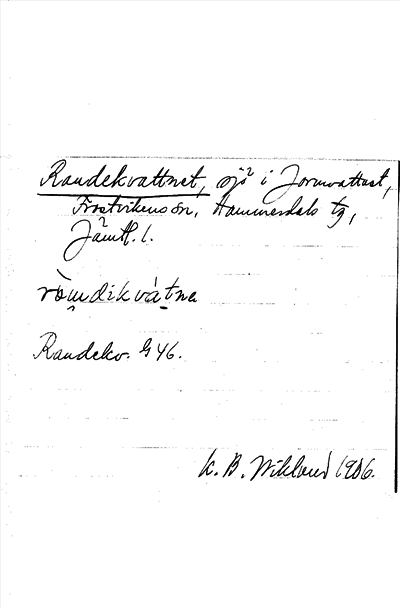 Raudekvattnet, sjö² i Jormvattnet,
Frostvikens sn, Hammerdals tg,
Jämtl. l.
Raudekv. G 46.
K. B. Wiklund 1906.